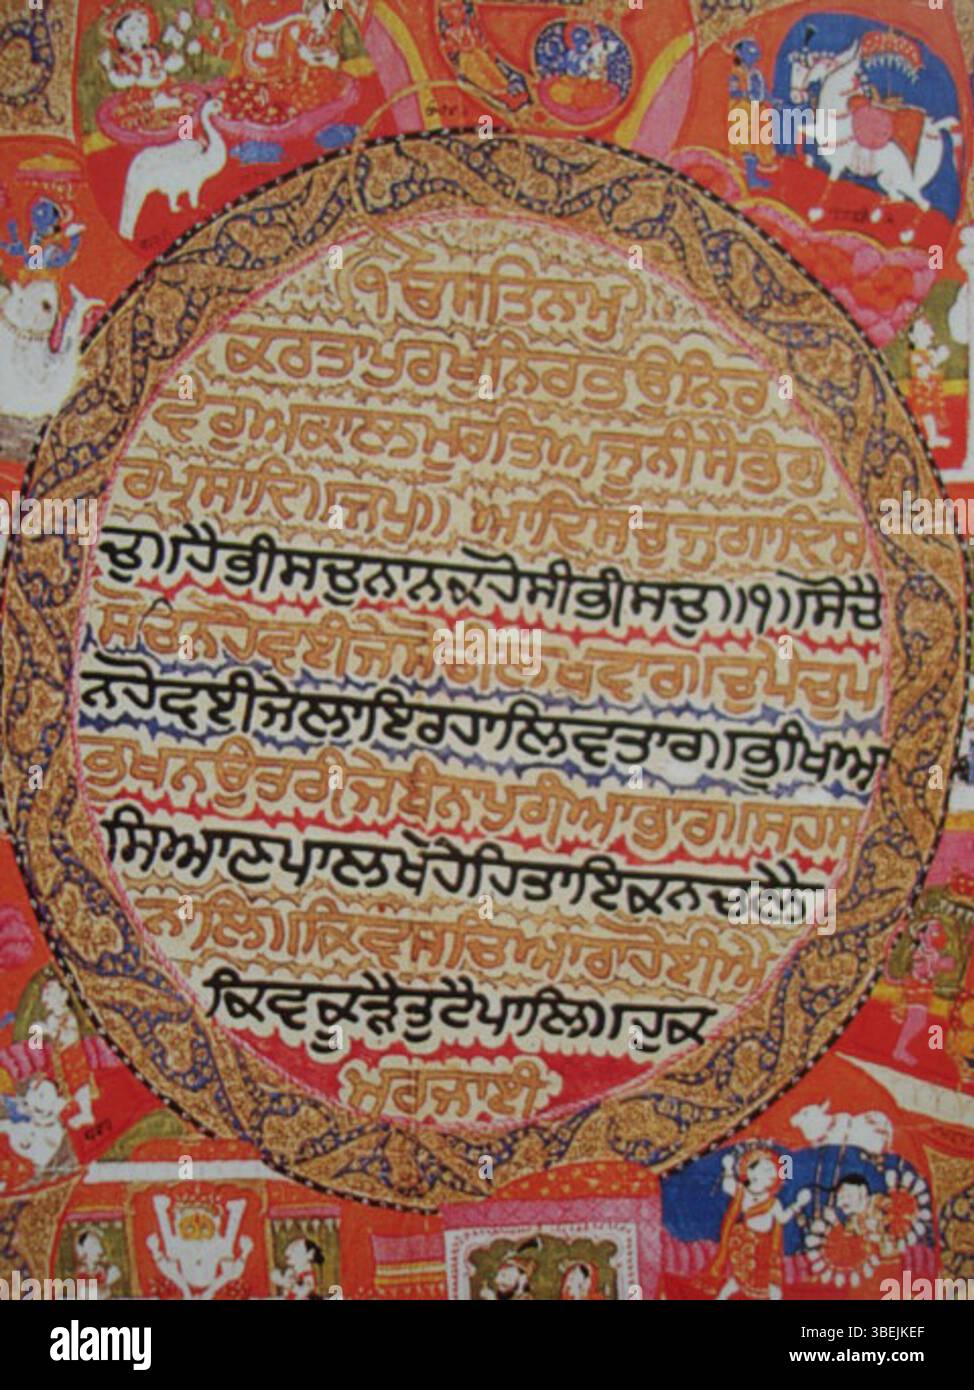 ੧ਓਸਤਿਨਾਮੁ
ਕਰਤਾਪੁਰਖੁਨਿਰਭਉਨਿਰ
ਵੈਰੁਅਕਾਲਮੂਰਤਿਅਜੂਨੀਸੈਭੰਗੁ
ਰਪ੍ਰਸਾਦਿ॥ਜਪੁ॥ ਆਦਿਸਚੁਜੁਗਾਦਿਸ
ਚੁ॥ਹੈਭੀਸਚੁਨਾਨਕਹੋਸੀਭੀਸਚੁ॥੧॥ਸੋਚੈ
ਸੋਚਿਨਹੋਵਈਜੇਸੋਚੀਲਖਵਾਰ॥ਚੁਪੈਚੁਪ
ਨਹੋਵਈਜੇਲਾਇਰਹਾਲਿਵਤਾਰ॥ਭੁਖਿਆ
ਭੁਖਨਉਤਰੀਜੇਬੰਨਾਪੁਰੀਆਭਾਰ॥ਸਹਸ
ਸਿਆਣਪਾਲਖਹੋਹਿਤਾਇਕਨਚਲੈ
ਨਾਲਿ॥ਕਿਵਸਚਿਆਰਾਹੋਈਐ
ਕਿਵਕੂੜੈਤੁਟੈਪਾਲਿ॥ਹੁਕ
ਮਰਜਾਈ
alamy
Image ID: 3BEJKEF
www.alamy.com